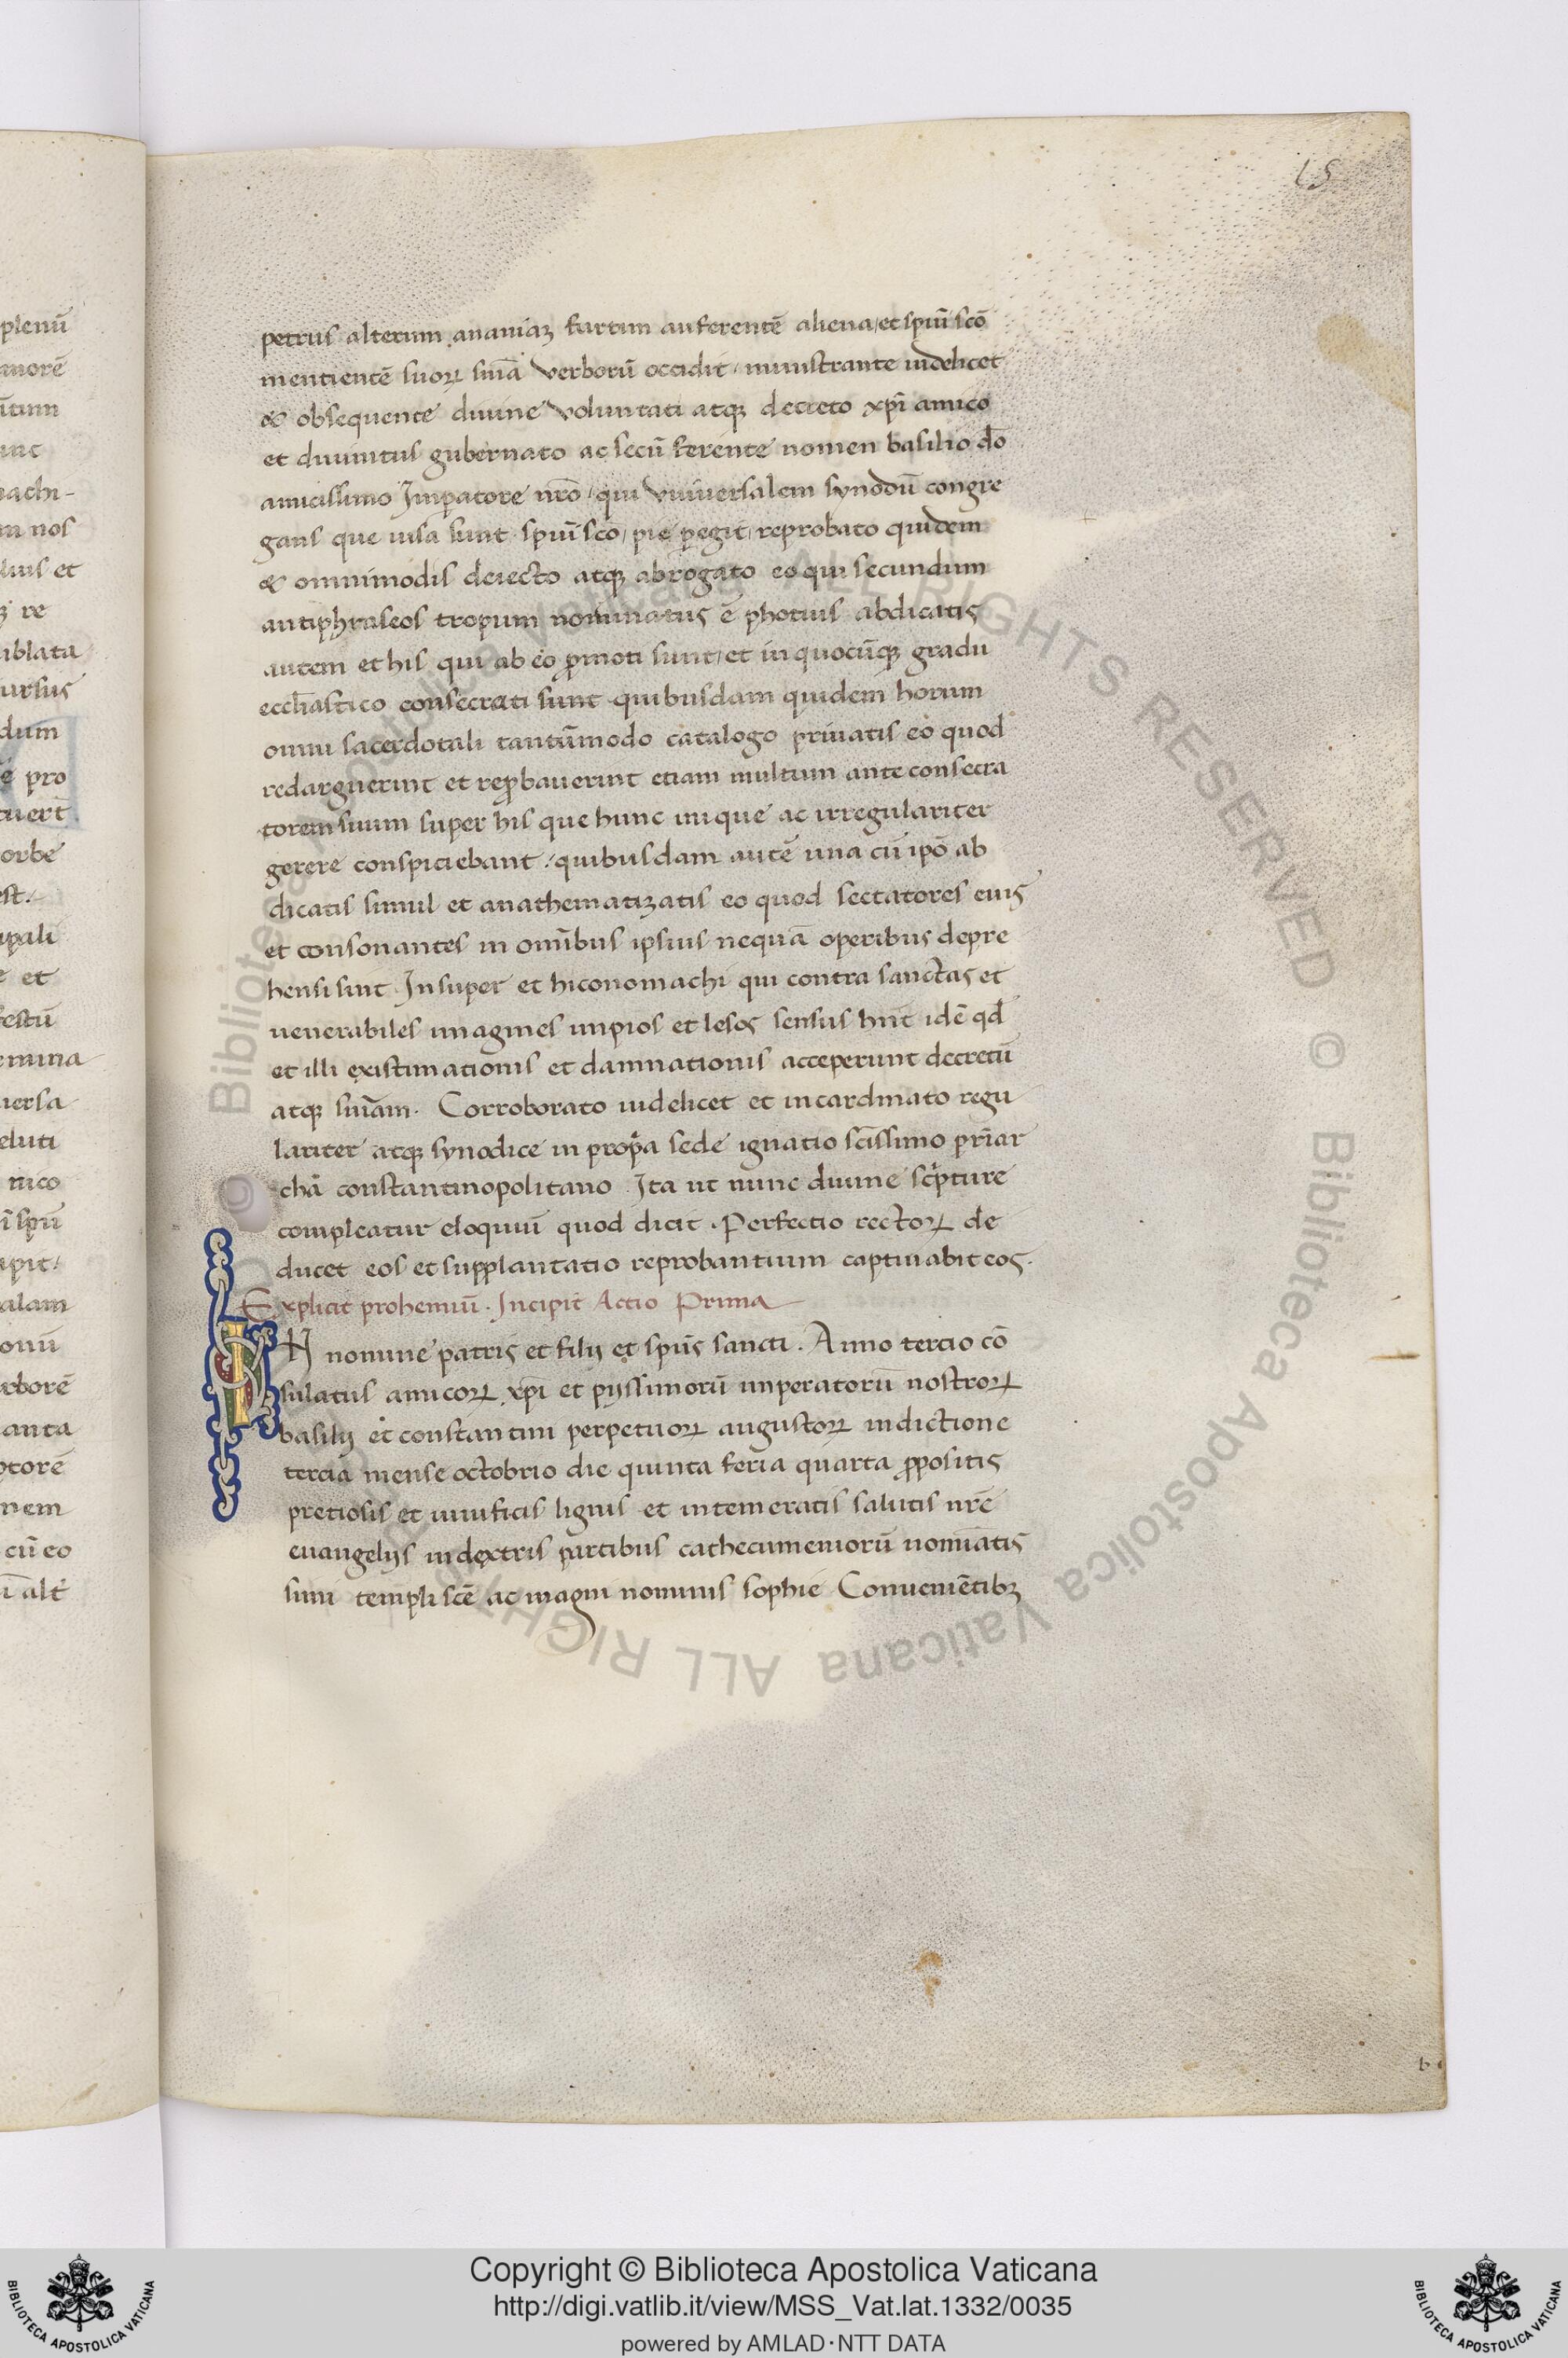 15
petrus alterum ananiaꝫ furtim auferentē aliena / et spiū scō
mentientē suoꝝ sniā verborū occidit / ministrante uidelicet
& obsequente diuine voluntati atqꝫ decreto xp̄i amico
et diuinitus gubernato ac secū ferente nomen basilio dō
amicissimo Imp̱atore nrō / qui vniuersalem synodū congre
gans que uisa sunt spiū scō / pie p̱egit / reprobato quidem
& omnimodis deiecto atqꝫ abrogato eo qui secundum
antiphraseos tropum nominatus ē photius abdicatis
autem et his qui ab eo p̱moti sunt / et in quocūqꝫ gradu
eccl̄iastico consecrati sunt quibusdam quidem horum
omni sacerdotali tantūmodo catalogo priuatis eo quod
redarguerint et rep̱bauerint etiam multum ante consecra
torem suum super his que hunc inique ac irregulariter
gerere conspiciebant / quibusdam autē una cū ip̄o ab
dicatis simul et anathematizatis eo quod sectatores eius
et consonantes in omībus ipsius nequā operibus depre
hensi sint Insuper et hiconomachi qui contra sanctas et
uenerabiles imagines impios et lesos sensus hn̄t idē qd̄
et illi existimationis et damnationis acceperunt decretū
atqꝫ sniam. Corroborato uidelicet et incardinato regu
lariter atqꝫ synodice in prop̱a sede ignatio scīssimo pr̄iar
chā constantinopolitano Ita ut nunc diuine scp̄ture
compleatur eloquiū quod dicit. Perfectio rectoꝝ de
ducet eos et supplantatio reprobantium captiuabit eos.
Explicit prohemiū. Incipit Actio Prima
IN nomine patris et filij et spūs sancti. Anno tercio cō
sulatus amicoꝝ xp̄i et pijssimorū imperatorū nostroꝝ
basilij et constantini perpetuoꝝ augustoꝝ indictione
tercia mense octobrio die quinta feria quarta p̱positis
pretiosis et uiuificis lignis et intemeratis salutis nrē
euangelijs in dextris partibus cathecumeniorū nomīatis
simi templi scē ac magni nominis sophie Conueniētibꝫ
plenū
morē
nos
et
re
ursus
dum
pro
orbe
et
nico
cū eo
Copyright © Biblioteca Apostolica Vaticana
http://digi.vatlib.it/view/MSS_Vat.lat.1332/0035
powered by AMLAD·NTT DATA
BIBLIOTECA APOSTOLICA VATICANA
BIBLIOTECA APOSTOLICA VATICANA
© Biblioteca Apostolica Vaticana ALL RIGHTS RESERVED © Biblioteca Apostolica Vaticana ALL RIGHTS